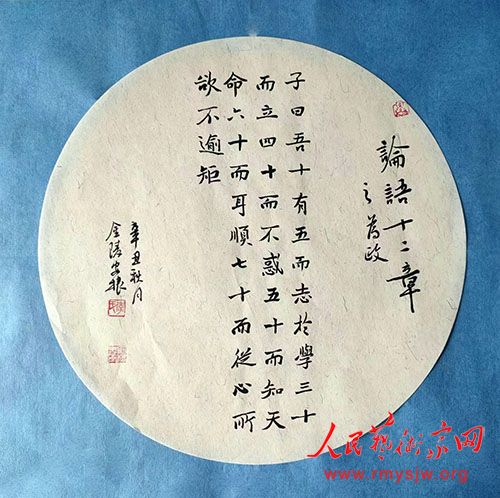 論語十二章
之為政
子曰吾十有五而志於學三十
而立四十而不惑五十而知天
命六十而耳順七十而從心所
欲不逾矩
辛丑秋月
金陵
人民藝術家网
www.rmysjw.org